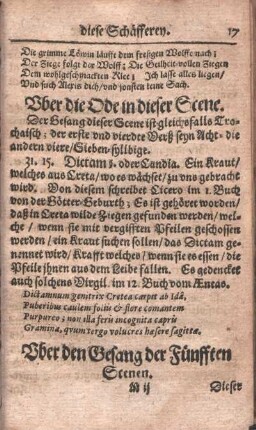 diese Schäfferey. 17
Die grimme Löwin läufft dem freßigen Wolffe nach;
Der Ziege folgt der Wolff; Die Geilheit-vollen Ziegen
Dem wohlgeschmackten Klee; Ich lasse alles liegen/
Und such Alexis dich/ und sonsten keine Sach.
Vber die Ode in dieser Scene.
Der Gesang dieser Scene ist gleichsfalls Tro-
chaisch; der erste und vierdte Verß seyn Acht- die
andern viere/ Sieben-syllbige.
31. 15. Dictam s. oder Candia. Ein Kraut/
welches aus Creta/ wo es wächset/ zu uns gebracht
wird. Von diesem schreibet Cicero im 2. Buch
von der Götter-Geburth; Es ist gehöret worden/
daß in Creta wilde Ziegen gefunden werden/ wel-
che/ wenn sie mit vergifften Pfeilen geschossen
werden/ ein Kraut suchen sollen/ das Dictam ge-
nennet wird/ Krafft welches/ wenn sie es essen/ die
Pfeile ihnen aus dem Leibe fallen. Es gedencket
auch solchens Virgil. im 12. Buch vom Æneas.
Dictamnum genitrix Cretea carpit ab Idâ,
Puberibus caulem foliis & flore comantem
Purpureo; non illa feris incognita capris
Gramina, qvum tergo volucres hæsere sagittæ.
Vber den Gesang der Fünfften
Scenen.
M ij Dieser